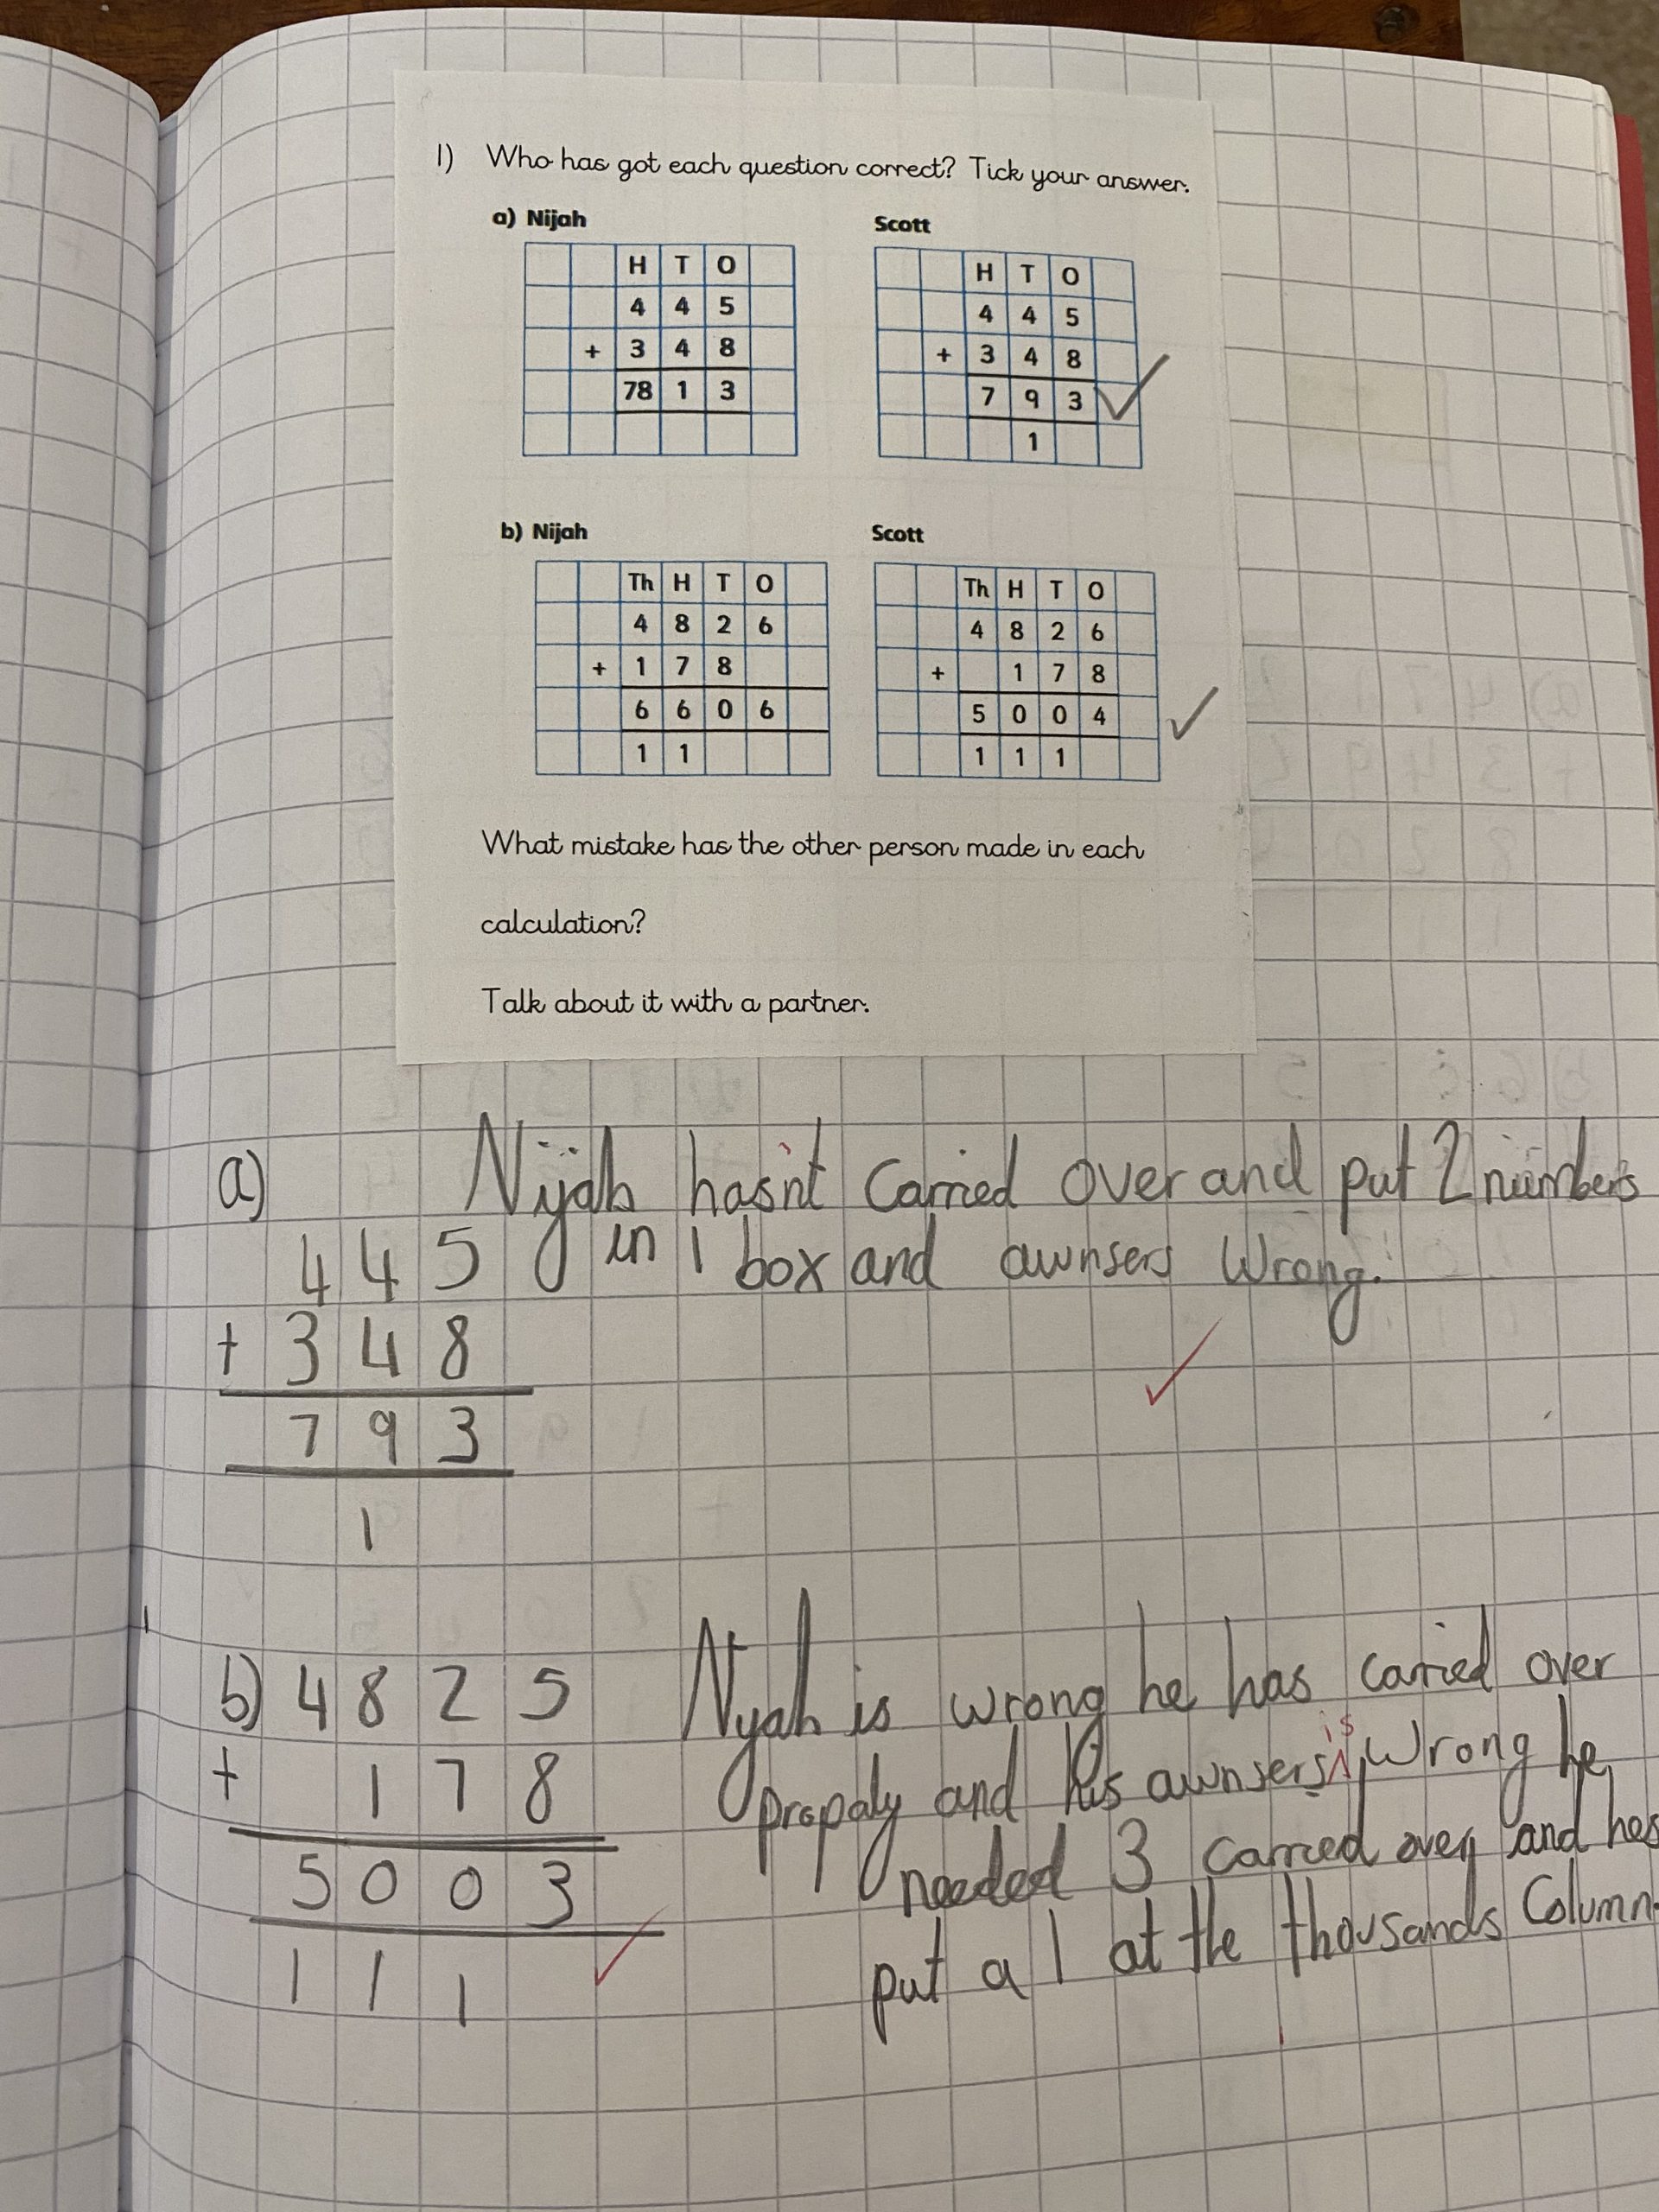 1) Who has got each question correct? Tick your answer.
a) Nijah Scott
H T O H T O
4 4 5 4 4 5
+ 3 4 8 + 3 4 8
78 1 3 7 9 3
1
b) Nijah Scott
Th H T O Th H T O
4 8 2 6 4 8 2 6
+ 1 7 8 + 1 7 8
6 6 0 6 5 0 0 4
1 1 1 1 1
What mistake has the other person made in each
calculation?
Talk about it with a partner.
a) Nijah hasn't carried over and put 2 numbers
4 4 5 in 1 box and awnsers wrong.
+ 3 4 8
7 9 3
1
b) 4 8 2 5 Nyah is wrong he has carried over
+ 1 7 8 propaly and his awnsers is wrong he
5 0 0 3 needed 3 carried over and hes
1 1 1 put a 1 at the thousands column.